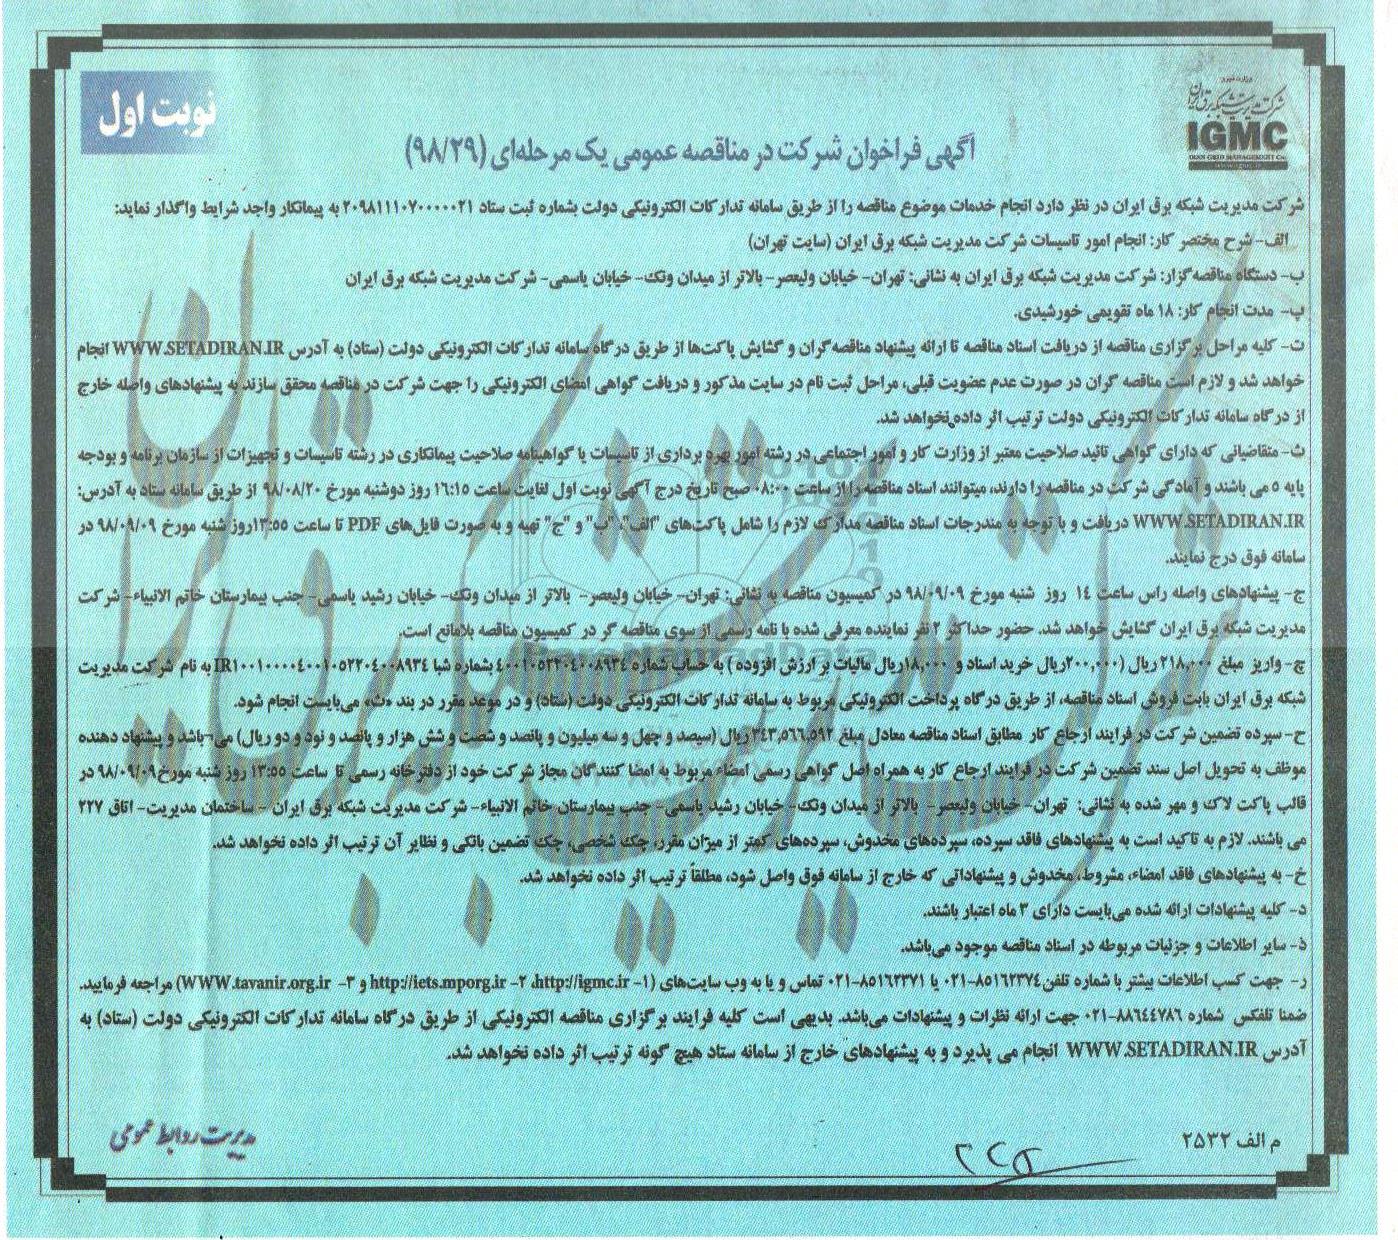 وزارت نیرو
شرکت مدیریت شبکه برق ایران
IGMC
IRAN GRID MANAGEMENT Co.
نوبت اول
آگهی فراخوان شرکت در مناقصه عمومی یک مرحله‌ای (۹۸/۲۹)
شرکت مدیریت شبکه برق ایران در نظر دارد انجام خدمات موضوع مناقصه را از طریق سامانه تدارکات الکترونیکی دولت بشماره ثبت ستاد ۲۰۹۸۱۱۱۰۷۰۰۰۰۰۲۱ به پیمانکار واجد شرایط واگذار نماید:
الف- شرح مختصر کار: انجام امور تاسیسات شرکت مدیریت شبکه برق ایران (سایت تهران)
ب- دستگاه مناقصه‌گزار: شرکت مدیریت شبکه برق ایران به نشانی: تهران- خیابان ولیعصر- بالاتر از میدان ونک- خیابان یاسمی- شرکت مدیریت شبکه برق ایران
پ- مدت انجام کار: ۱۸ ماه تقویمی خورشیدی.
ت- کلیه مراحل برگزاری مناقصه از دریافت اسناد مناقصه تا ارائه پیشنهاد مناقصه‌گران و گشایش پاکت‌ها از طریق درگاه سامانه تدارکات الکترونیکی دولت (ستاد) به آدرس WWW.SETADIRAN.IR انجام
خواهد شد و لازم است مناقصه گران در صورت عدم عضویت قبلی، مراحل ثبت نام در سایت مذکور و دریافت گواهی امضای الکترونیکی را جهت شرکت در مناقصه محقق سازند به پیشنهادهای واصله خارج
از درگاه سامانه تدارکات الکترونیکی دولت ترتیب اثر داده نخواهد شد.
ث- متقاضیانی که دارای گواهی تائید صلاحیت معتبر از وزارت کار و امور اجتماعی در رشته امور بهره برداری از تاسیسات یا گواهینامه صلاحیت پیمانکاری در رشته تاسیسات و تجهیزات از سازمان برنامه و بودجه
پایه ۵ می باشند و آمادگی شرکت در مناقصه را دارند، میتوانند اسناد مناقصه را از ساعت ۰۸:۰۰ صبح تاریخ درج آگهی نوبت اول لغایت ساعت ۱۶:۱۵ روز دوشنبه مورخ ۹۸/۰۸/۲۰ از طریق سامانه ستاد به آدرس:
WWW.SETADIRAN.IR دریافت و با توجه به مندرجات اسناد مناقصه مدارک لازم را شامل پاکت‌های "الف"، "ب" و "ج" تهیه و به صورت فایل‌های PDF تا ساعت ۱۳:۵۵ روز شنبه مورخ ۹۸/۰۹/۰۹ در
سامانه فوق درج نمایند.
ج- پیشنهادهای واصله راس ساعت ۱۴ روز شنبه مورخ ۹۸/۰۹/۰۹ در کمیسیون مناقصه به نشانی: تهران- خیابان ولیعصر- بالاتر از میدان ونک- خیابان رشید یاسمی- جنب بیمارستان خاتم الانبیاء- شرکت
مدیریت شبکه برق ایران گشایش خواهد شد. حضور حداکثر ۲ نفر نماینده معرفی شده با نامه رسمی از سوی مناقصه گر در کمیسیون مناقصه بلامانع است.
چ- واریز مبلغ ۲۱۸,۰۰۰ ریال (۲۰۰,۰۰۰ریال خرید اسناد و ۱۸,۰۰۰ریال مالیات بر ارزش افزوده ) به حساب شماره ۴۰۰۱۰۵۲۲۰۴۰۰۸۹۳۴ بشماره شبا IR۱۰۰۱۰۰۰۰۴۰۰۱۰۵۲۲۰۴۰۰۸۹۳۴ به نام شرکت مدیریت
شبکه برق ایران بابت فروش اسناد مناقصه، از طریق درگاه پرداخت الکترونیکی مربوط به سامانه تدارکات الکترونیکی دولت (ستاد) و در موعد مقرر در بند «ث» می‌بایست انجام شود.
ح- سپرده تضمین شرکت در فرایند ارجاع کار مطابق اسناد مناقصه معادل مبلغ ۳۴۳,۵۶۶,۵۹۲ ریال (سیصد و چهل و سه میلیون و پانصد و شصت و شش هزار و پانصد و نود و دو ریال) می باشد و پیشنهاد دهنده
موظف به تحویل اصل سند تضمین شرکت در فرایند ارجاع کار به همراه اصل گواهی رسمی امضاء مربوط به امضا کنندگان مجاز شرکت خود از دفترخانه رسمی تا ساعت ۱۳:۵۵ روز شنبه مورخ ۹۸/۰۹/۰۹ در
قالب پاکت لاک و مهر شده به نشانی: تهران- خیابان ولیعصر- بالاتر از میدان ونک- خیابان رشید یاسمی- جنب بیمارستان خاتم الانبیاء- شرکت مدیریت شبکه برق ایران - ساختمان مدیریت- اتاق ۲۲۷
می باشند. لازم به تاکید است به پیشنهادهای فاقد سپرده، سپرده‌های مخدوش، سپرده‌های کمتر از میزان مقرر، چک شخصی، چک تضمین بانکی و نظایر آن ترتیب اثر داده نخواهد شد.
خ- به پیشنهادهای فاقد امضاء، مشروط، مخدوش و پیشنهاداتی که خارج از سامانه فوق واصل شود، مطلقاً ترتیب اثر داده نخواهد شد.
د- کلیه پیشنهادات ارائه شده می‌بایست دارای ۳ ماه اعتبار باشند.
ذ- سایر اطلاعات و جزئیات مربوطه در اسناد مناقصه موجود می‌باشد.
ر- جهت کسب اطلاعات بیشتر با شماره تلفن ۸۵۱۶۲۳۷۴-۰۲۱ یا ۸۵۱۶۲۳۷۱-۰۲۱ تماس و یا به وب سایت‌های (۱- http://igmc.ir، ۲- http://iets.mporg.ir و ۳- WWW.tavanir.org.ir) مراجعه فرمایید.
ضمنا تلفکس شماره ۸۸۶۴۴۷۸۶-۰۲۱ جهت ارائه نظرات و پیشنهادات می‌باشد. بدیهی است کلیه فرایند برگزاری مناقصه الکترونیکی از طریق درگاه سامانه تدارکات الکترونیکی دولت (ستاد) به
آدرس WWW.SETADIRAN.IR انجام می پذیرد و به پیشنهادهای خارج از سامانه ستاد هیچ گونه ترتیب اثر داده نخواهد شد.
م الف ۲۵۳۲
مدیریت روابط عمومی